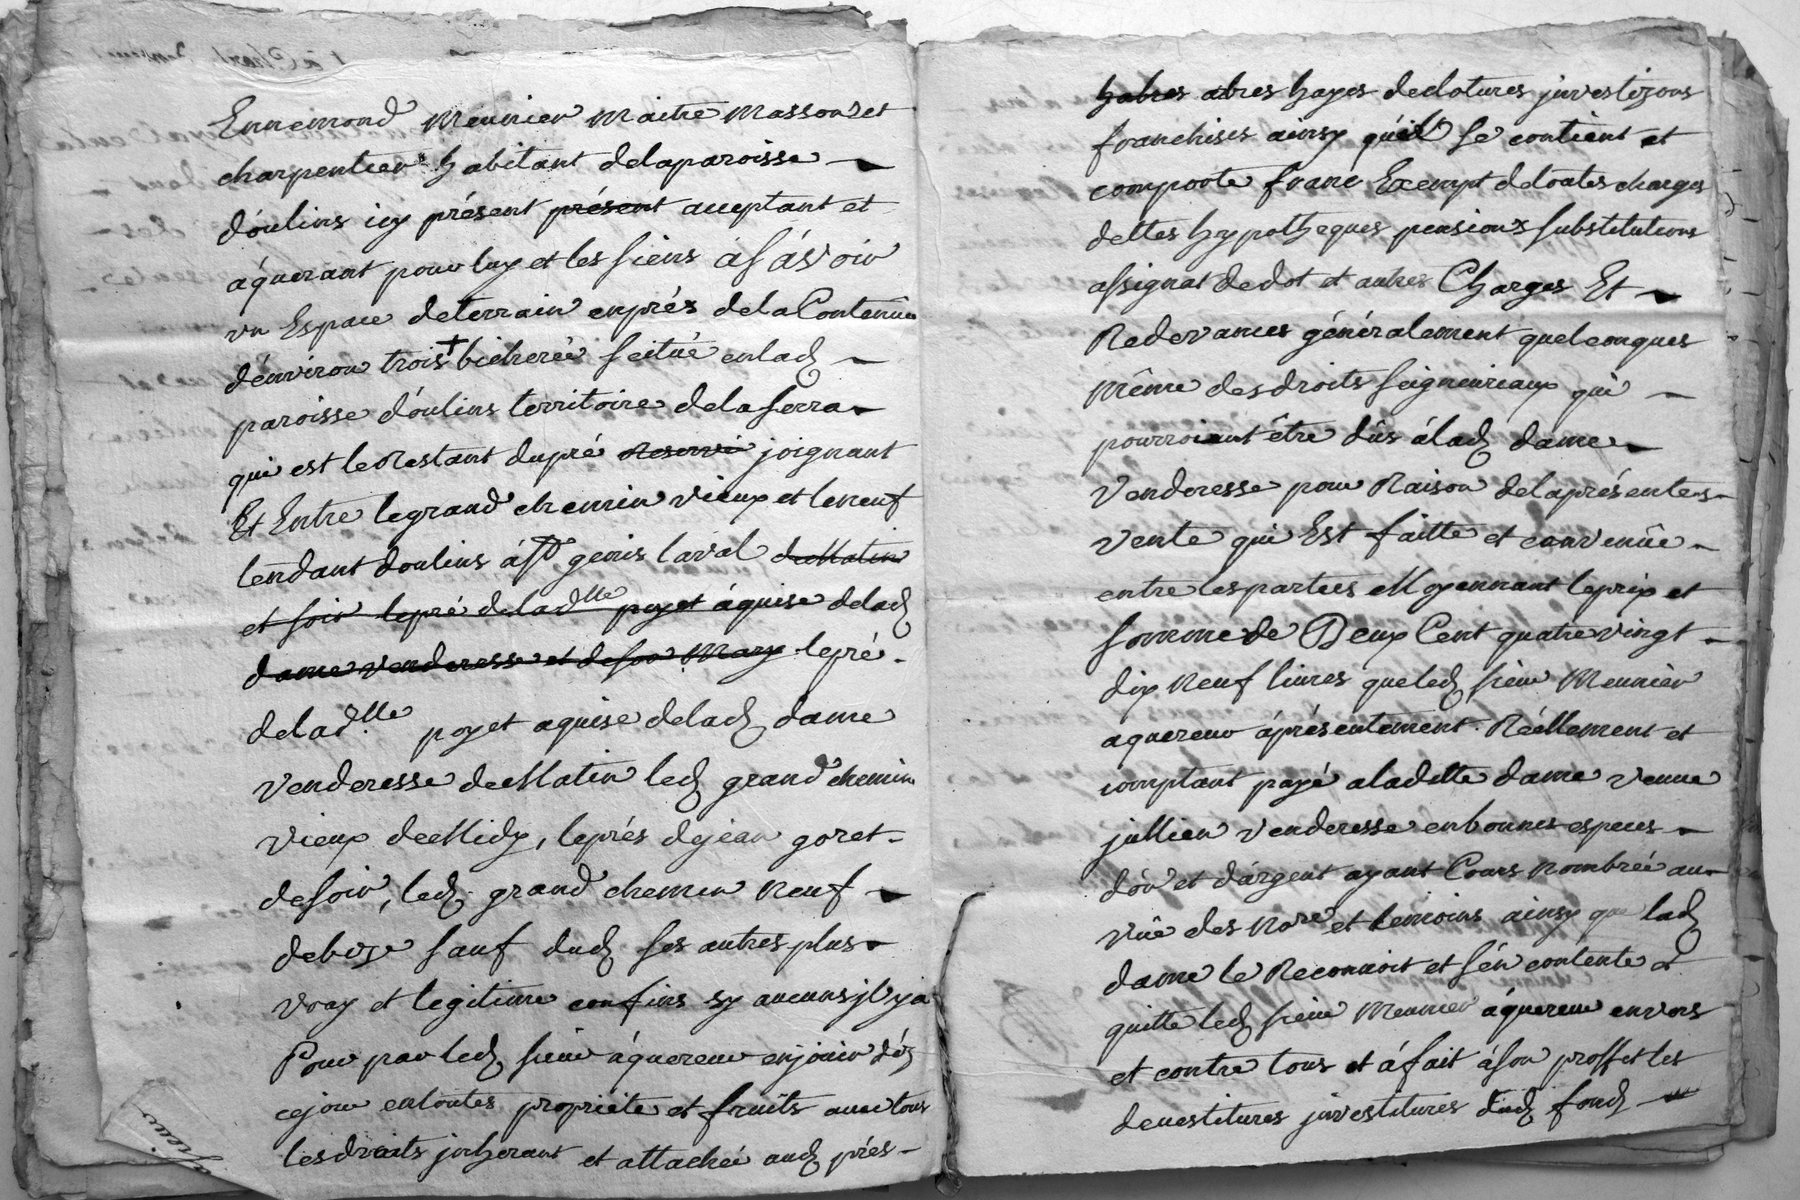 Ennemond Meunier Maitre Masson et
charpentier habitant delaparoisse
d'oulins icy présent présent acceptant et
áquerant pour luy et les siens ásÁvoir
un Espace deterrain enprés dela Contenüe
d'énviron trois bicherée scitué enlad
paroisse d'oulins territoire delaferra
qui est le Restant dupré Reservé joignant
Et Entre legrand chemin vieux et leneuf
tendant doulins ást genis laval deMatin
et soir lepré delad.lle poyet áquise delad
dame venderesse et deson Mary lepré
delad.lle poyet aquise delad dame
venderesse deMatin led grand chemin
vieux deMidy, leprés dejean goret
desoir, led grand chemin neuf
debize sauf dud ses autres plus
vray et legitime confins sy aucuns jl y a
Pour par led sieur áquereur enjouir dés
cejour entoutes propriété et fruits avec tous
lesdroits jnherant et attachée aud prés
habres abres hayes declotures jnvestizons
franchises ainsy qu'il se contient et
comporte franc Exempt detoutes charges
dettes hypotheques pensions substitutions
assignat dedot et autres Charges Et
Redevances généralement quelconques
même desdroits seigneuriaux qui
pourroient être dûs álad dame
Venderesse pour Raison delaprésentes
vente qui Est faitte et convenûe
entre lesparties Moyennant leprix et
somme de Deux Cent quatre vingt
dix neuf livres queled sieur Meunier
aquereur áprésentement Réellement et
comptant payé aladitte dame veuve
jullien venderesse enbonnes especes
d'ór et d'árgent ayant Cours nombrée au
vûe des no.re et temoins ainsy que lad
dame le Reconnoit et s'én contente et
quitte led sieur Meunier áquereur envers
et contre tous et áfait áson proffit les
devestitures jnvestitures dud fond